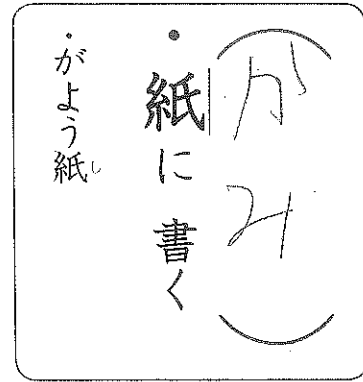 (かみ)
・紙に書く
・がよう紙し